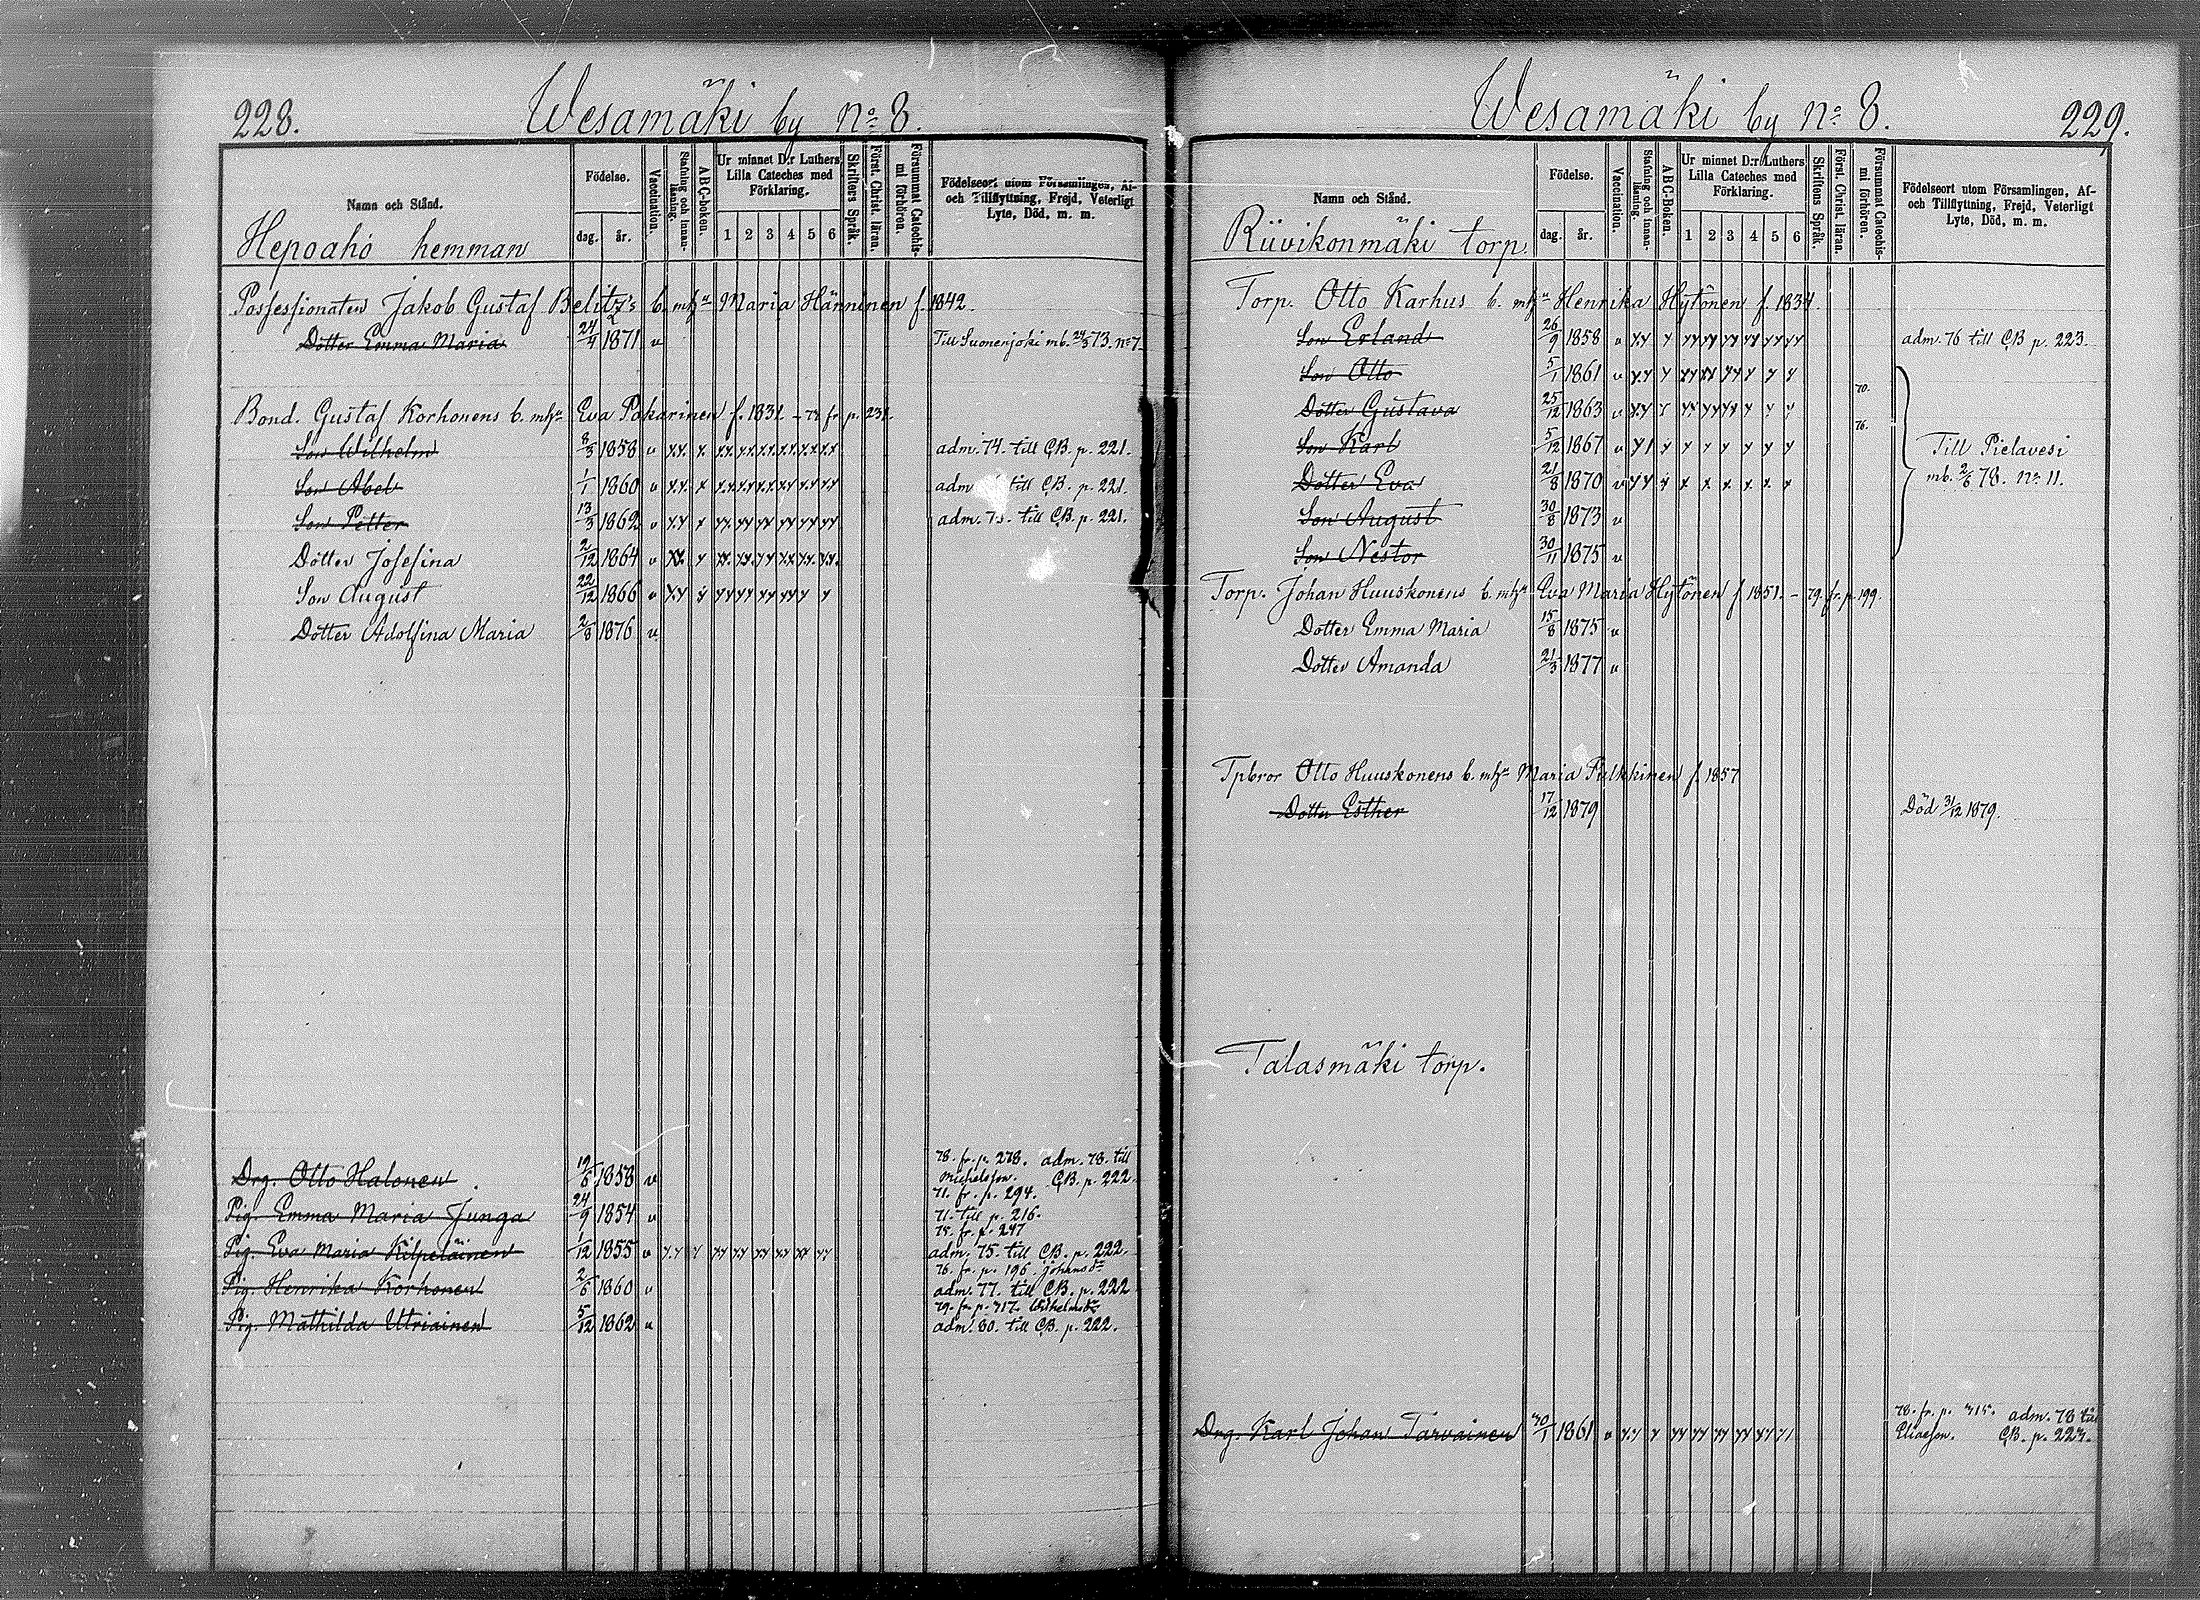 228. Wesamäki by No 8.
Namn och Stånd.
Födelse.
dag. år.
Vaccination.
Stafning och Innanläsning.
ABC-boken.
Ur minnet D:r Luthers Lilla Cateches med Förklaring.
1 2 3 4 5 6
Skriftens Språk.
Först. Christ. läran.
Försummat Catechismi förhören.
Födelseort utom Församlingen, Af-
och Tillflyttning, Frejd, Veterligt
Lyte, Död, m. m.
Hepoaho hemman
Possessionaten Jakob Gustaf Belitz's b. m. h:u Maria Hänninen f. 1842.
Dotter Emma Maria 24/4 1871 v Till Suonenjoki mb. 24/3 73. No 7
Bond. Gustaf Korhonens b. mhu Eva Pakarinen f. 1831 - 73 fr. p. 231.
Son Wilhelm 8/3 1858 v adm. 74. till C.B. p. 221.
Son Abel 1/1 1860 v adm till C.B. p. 221.
Son Petter 13/3 1862 v adm. till C.B. p. 221.
Dotter Josefina 2/12 1864 v
Son August 22/12 1866 v
Dotter Adolfina Maria 2/8 1876 v
Drg. Otto Halonen 19/6 1858 v 78. fr. p. 278. adm. 78. till
Michelsson. C.B. p. 222
71. fr. p. 294.
Pig. Emma Maria Junga 24/9 1854 v 71. till p. 216.
75. fr. p. 247
Pig. Eva Maria Kilpeläinen 1/12 1855 v adm. 75. till C.B. p. 222.
76. fr. p. 196. Johansdr
Pig. Henrika Korhonen 2/6 1860 v adm. 77. till C.B. p. 222
79. fr. p. 317. Wilhelmsdr
Pig. Mathilda Utriainen 5/12 1862 v adm. 80. till C.B. p. 222.
Wesamäki by No 8. 229.
Namn och Stånd.
Födelse.
dag. år.
Vaccination.
Stafning och Innanläsning.
ABC-Boken.
Ur minnet D:r Luthers Lilla Cateches med Förklaring.
1 2 3 4 5 6
Skriftens Språk.
Först. Christ. läran.
Försummat Catechismi förhören.
Födelseort utom Församlingen, Af-
och Tillflyttning, Frejd, Veterligt
Lyte, Död, m. m.
Riivikonmäki torp.
Torp. Otto Karhus b. mhu Henrika Hytönen f. 1834.
Son Erland 26/9 1858 v adm. 76 till C.B p. 223.
Son Otto 5/1 1861 v
70.
Dotter Gustava 25/12 1863 v
76.
Son Karl 5/12 1867 v Till Pielavesi
Dotter Eva 21/8 1870 v mb. 2/6 78. No 11.
Son August 30/8 1873 v
Son Nestor 30/11 1875 v
Torp. Johan Huuskonens b. mhu Eva Maria Hytönen f 1851. - 79. fr. p. 199.
Dotter Emma Maria 15/8 1875 v
Dotter Amanda 21/3 1877 v
Tpbror Otto Huuskonens b. mhu Maria Pulkkinen f. 1857
Dotter Esther 17/12 1879 Död 31/12 1879.
Talasmäki torp.
78. fr. p. 315. adm. 78 till
Drg. Karl Johan Tarvainen 30/1 1861 v Eliasson. C.B. p. 223.